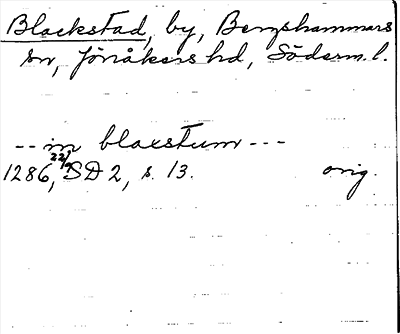 Blackstad, by, Bergshammars
sn, Jönåkers hd, Söderm. l.
-- in blaxstum ---
1286 22/9, SD 2, s. 13. orig.